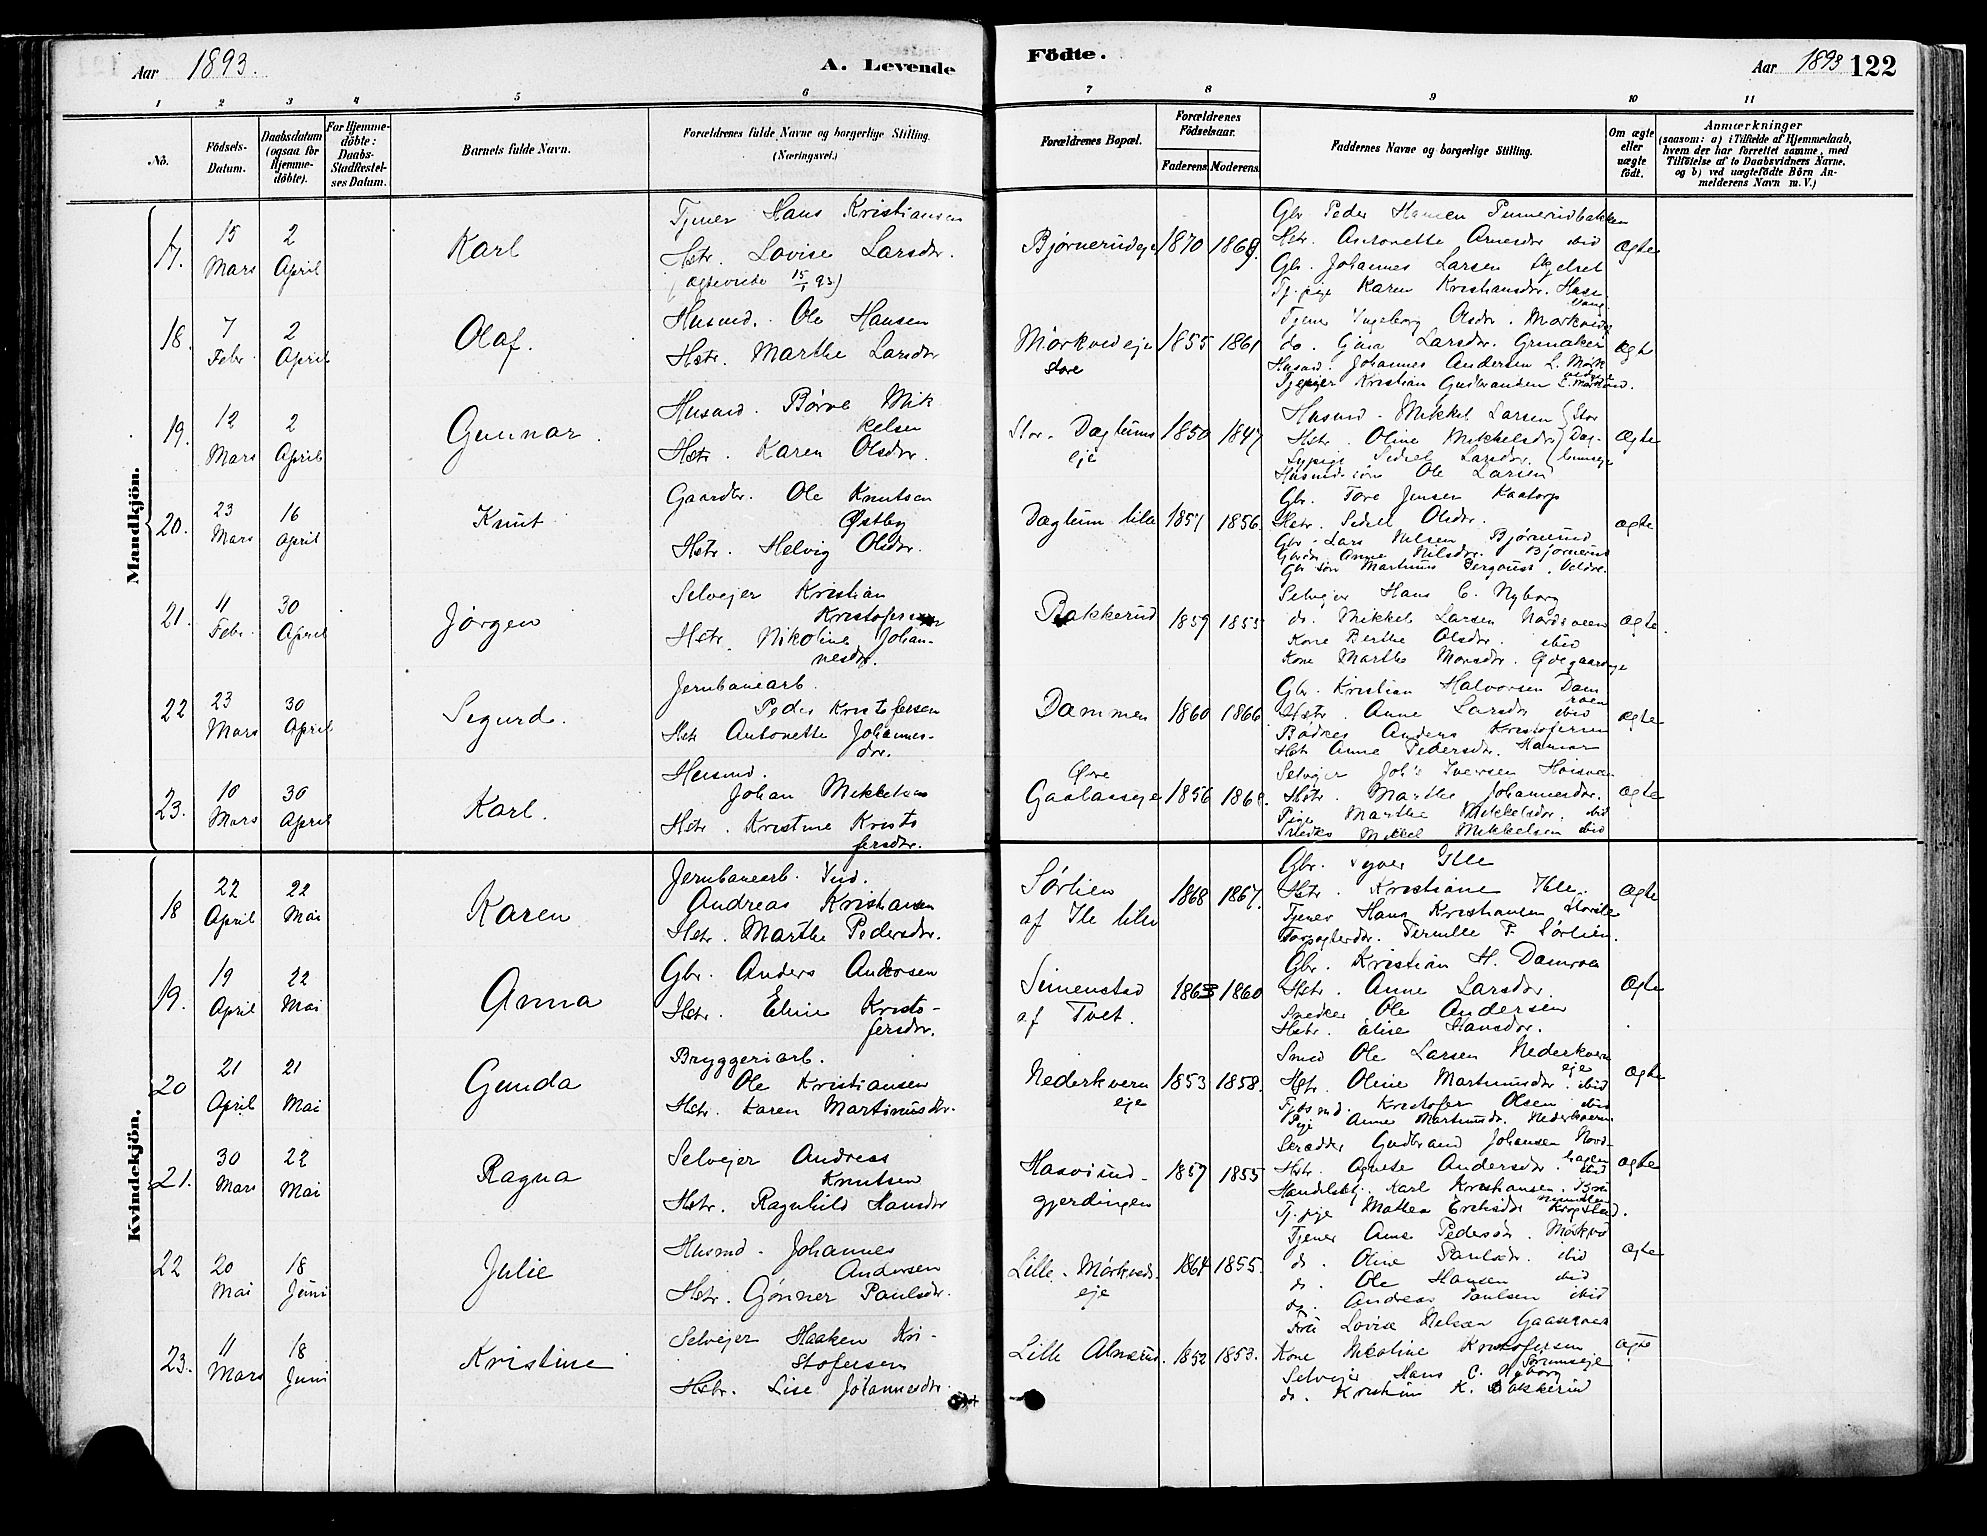 Aar 1893.
A. Levende
Födte.
Aar 1893 122
1 2 3 4 5 6 7 8 9 10 11
No.
Födsels-Datum.
Daabsdatum (ogsaa for Hjemmedöbte).
For Hjemmedöbte: Daabs-Stadfestelses Datum.
Barnets fulde Navn.
Forældrenes fulde Navne og borgerlige Stilling.
(Næringsvei.)
Forældrenes Bopæl.
Forældrenes Födselsaar.
Faderens. Moderens.
Faddernes Navne og borgerlige Stilling.
Om ægte eller uægte födt.
Anmærkninger
(saasom: a) i Tilfælde af Hjemmedaab, hvem der har forrettet samme, med Tilföielse af to Daabsvidners Navne, og b) ved uægtefödte Börn Anmelderens Navn m. V.)
Mandkjön.
17. 15 Mars 2 April Karl
Tjener Hans Kristiansen
Hstr. Lovise Larsdr.
(Ægteviede 15/1 93)
Bjørnerudeje 1870 1869.
Gbr Peder Hansen
Hstr. Antonette Arnesdr ibid
Gbr. Johannes Larsen
Tj. pige Karen Kristiansdr.
Ægte
18. 7 Febr. 2 April Olaf.
Husmd. Ole Hansen
Hstr. Marthe Larsdr
Mørkvedeje store 1855 1861
Tjener Ingeborg Olsdr. Mørkvedeje
do. Larsdr. Grenaker
Husmd. Johannes Andersen L. Mørkvedeje
Kristian Gudbrandsen L. Mørkved.
Ægte
19. 12 Mars 2 April Gunnar.
Husmd. Børre Mikkelsen
Hstr. Karen Olsdr.
Stor. Daglums eje 1850 1847
Husmd. Mikkel Larsen Stor
Hstr. Oline Mikkelsdr Daglumseje
Sypige Sidsel Larsdr.
Husmds søn Ole Larsen
Ægte
20. 23 Mars 16 April Knut
Gaardbr. Ole Knutsen Østby
Hstr. Helvig Olsdr.
Daglum lille 1851 1856.
Gbr. Tore Jensen Kaatorp
Hstr. Sidsel Olsdr.
Gbr. Lars Nilsen Bjørnerud
Anne Nilsdr. Bjørnerud
Gbr søn Martinus
Ægte
21. 11 Febr. 30 April Jørgen
Selvejer Kristian Kristofersen
Hstr. Nikoline Johannesdr.
Bakkerud 1859 1855
Selvejer Hans C. Nyborg
do. Mikkel Larsen Nordsveen
Kone Berthe Olsdr. ibid
Kone Marthe Monsdr. Ødegaardseje
Ægte.
22 23 Mars 30 April Segurd.
Jernbanearb. Peder Kristofersen
Hstr Antonette Johannesdr.
Dammen 1860 1866
Gbr. Kristian Halvorsen Damroen
Hstr. Anne Larsdr ibid
Bødker Anders Kristofersen
Hstr Anne Pedersdr. Hamar
Ægte
23. 10 Mars 30 April Karl.
Husmd. Johan Mikkelsen
Hstr. Kristine Kristofersdr.
Øvre Gaalaaseje 1856
Selvejer Johs Iversen
Hstr. Marthe Johannesdr.
Pige Marthe Mikkelsdr. ibid
Snedker Mikkel Mikkelsen ibid
Ægte
Kvindekjön.
18 22 April 22 Mai Karen
Jernbanearb. Ind. Andreas Kristiansen
Hstr. Marthe Pedersdr.
Sørlien af Ile lille 1868 1867.
Gbr. Syver Ille
Hstr. Kristiane Ille.
Tjener Hans Kristiansen
Pernille P. Sørlien.
Ægte
19. 19 April 22 Mai Anna
Gbr. Anders Andersen
Hstr. Eline Kristofersdr.
Simenstad af Tvet. 1863 1860
Gbr. Kristian H. Damroen
Hstr. Anne Larsdr.
Snedker Ole Andersen
Hstr. Elise Hansdr.
Ægte
20 21 April 21 Mai Gunda
Bryggeriarb. Ole Kristiansen
Hstr. Karen Martinusdr.
Nederkvern eje 1853 1858.
Smed Ole Larsen Nederkvern eje
Hstr. Oline Martinusdr. ibid
Kristofer Olsen ibid
Pige Anne Martinusdr. Nederkvern
Ægte
21. 30 Mars 22 Mai Ragna
Selvejer Andreas Knutsen
Hstr. Ragnhild Hansdr
Haavisud-gjerdingen 1857 1855
Skrædder Gudbrand Johansen Nordhagen
Hstr. Agnete Andersdr. ibid
Handelsbetj. Karl Kristiansen.
Tj. pige Mathea
Ægte
22 20 Mai 18 Juni Julie
Husmd. Johannes Andersen
Hstr. Gønner Paulsdr.
Lille. Mørkveds-eje 1864 1855.
Tjener Anne Pedersdr. Mørkved
do. Oline Paulsdr. ibid
do. Ole Hansen ibid
do. Andreas Paulsen ibid
Ægte
23. 11 Mars 18 Juni Kristine
Selvejer Haaken Kristofersen
Hstr. Lise Johannesdr.
Lille Alnærud. 1852 1853.
Fru Lovise Nelson
Kone Nicoline Kristofersen
Selvejer Hans C. Nyborg
do. Kristian K. Bakkerud
Ægte